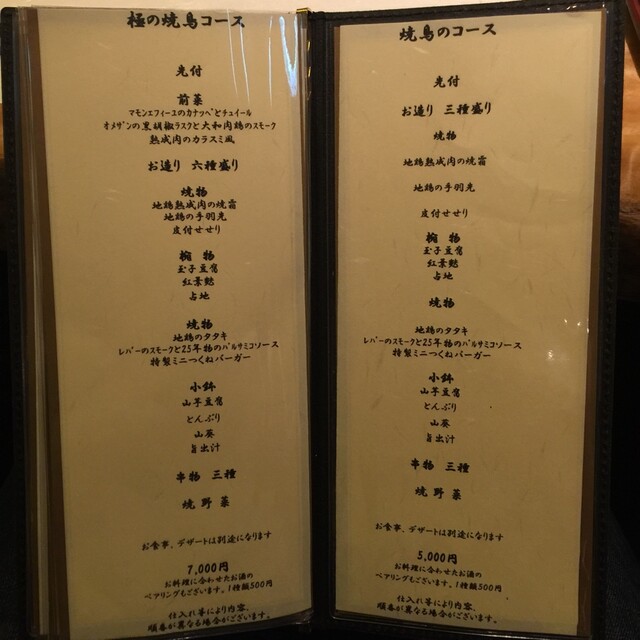 極の焼鳥コース
先付
前菜
マモンエフィーユのカナッペとチュイール
オメザンの黒胡椒ラスクと大和肉鶏のスモーク
熟成肉のカラスミ風
お造り 六種盛り
焼物
地鶏熟成肉の焼霜
地鶏の手羽先
皮付せせり
椀物
玉子豆腐
紅葉麩
占地
焼物
地鶏のタタキ
レバーのスモークと25年物のバルサミコソース
特製ミニつくねバーガー
小鉢
山芋豆腐
とんぶり
山葵
旨出汁
串物 三種
焼野菜
お食事、デザートは別途になります
7,000円
お料理に合わせたお酒の
ペアリングもございます。1種類500円
仕入れ等により内容、
順番が異なる場合がございます。
焼鳥のコース
先付
お造り 三種盛り
焼物
地鶏熟成肉の焼霜
地鶏の手羽先
皮付せせり
椀物
玉子豆腐
紅葉麩
占地
焼物
地鶏のタタキ
レバーのスモークと25年物のバルサミコソース
特製ミニつくねバーガー
小鉢
山芋豆腐
とんぶり
山葵
旨出汁
串物 三種
焼野菜
お食事、デザートは別途になります
5,000円
お料理に合わせたお酒の
ペアリングもございます。1種類500円
仕入れ等により内容、
順番が異なる場合がございます。